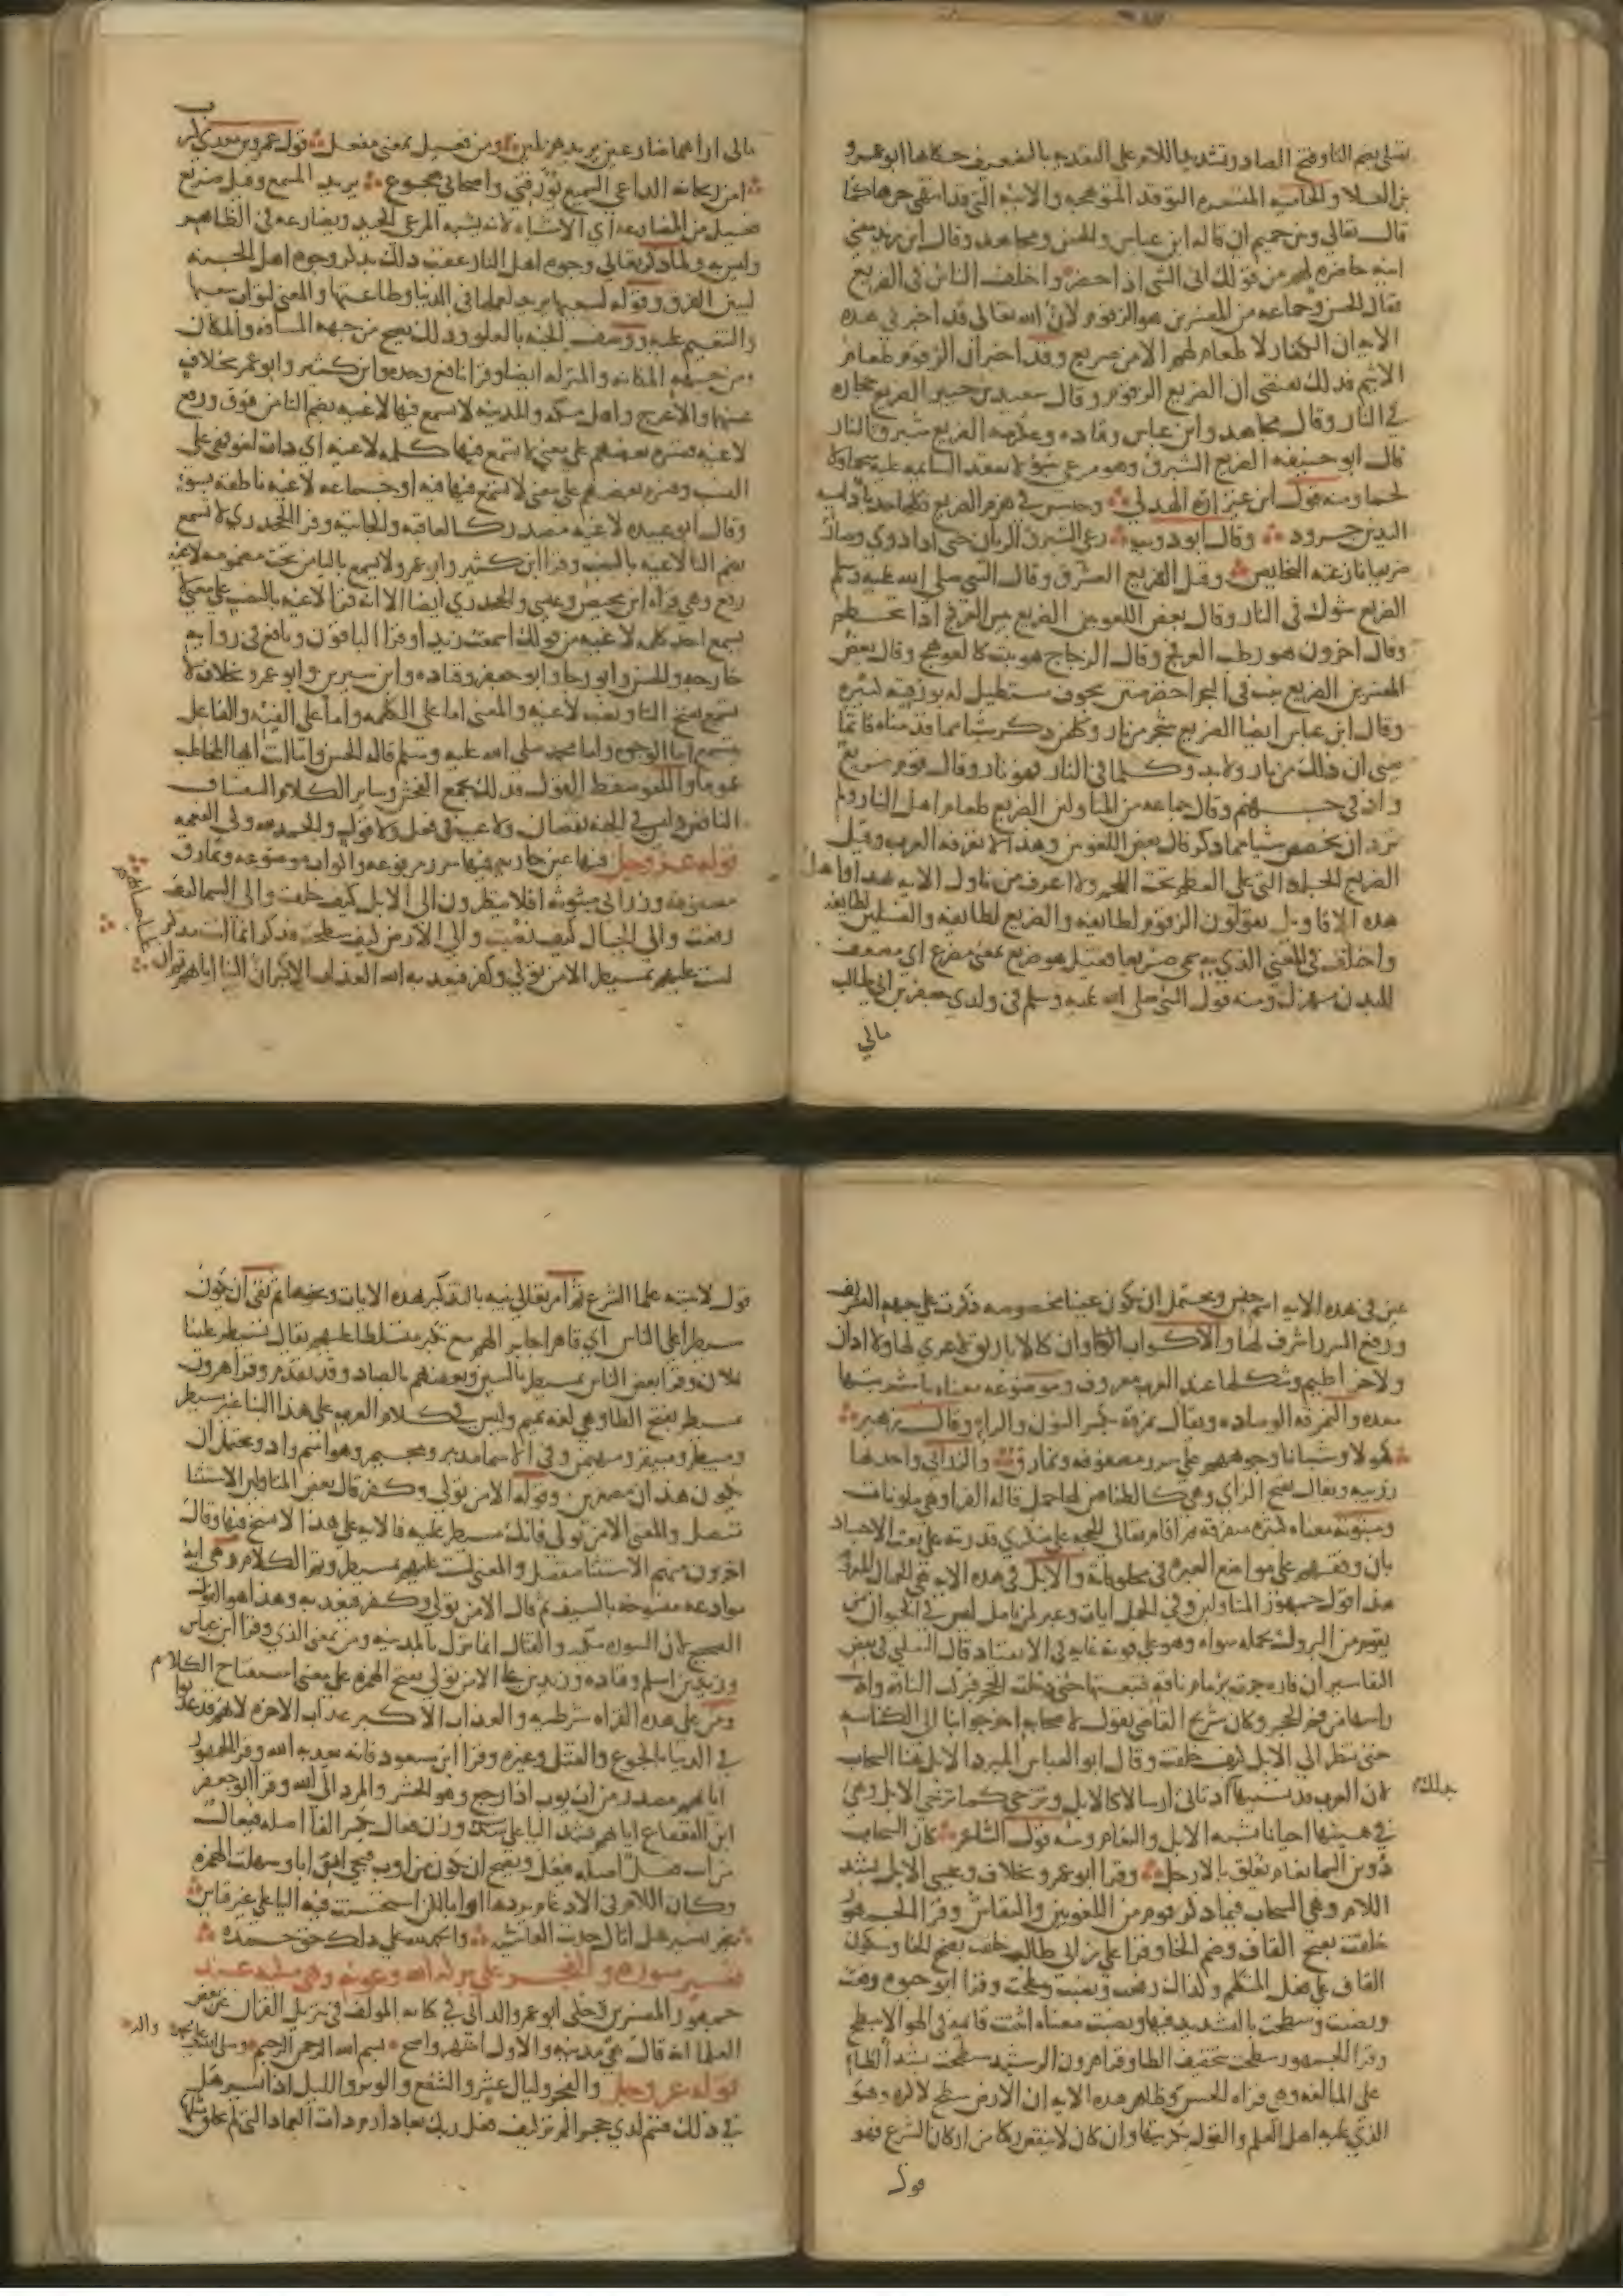 تصلى بضم التا وفتح الصاد وتشديد اللام على التعدية بالتضعيف حكاها ابو عمرو
بن العلا والحامية المتسعرة التوقد المتوهجة والانية التي قد انتهى حرها كما
قال تعالى وبين حميم ان قاله ابن عباس والحسن ومجاهد وقال ابن زيد معنى
انية حاضرة لهم من قولك انى الشي اذا حضر واختلف الناس في الضريع
فقال الحسن وجماعة من المفسرين هو الزقوم لان الله تعالى قد اخبر في هذه
الاية ان الكفار لا طعام لهم الا من ضريع وقد اخبر ان الزقوم طعام
الاثيم فذلك يقتضي ان الضريع الزقوم وقال سعيد بن جبير الضريع حجارة
في النار وقال مجاهد وابن عباس وقتادة وعكرمة الضريع شبرق النار
قال ابو حنيفة الضريع الشبرق وهو مرعى سوء لا تعقد السائمة عليه شحما ولا
لحما ومنه قول ابن عيزارة الهذلي وحبسن في هزم الضريع فكلها حدباء دامية
اليدين حرود وقال ابو ذويب رعى الشبرق الريان حتى اذا ذوى وصار
ضريعا نازعته النحايص وقيل الضريع العشرق وقال النبي صلى الله عليه وسلم
الضريع شوك في النار وقال بعض اللغويين الضريع يبيس العرفج اذا تحطم
وقال اخرون هو رطب العرفج وقال الزجاج هو نبت كالعوسج وقال بعض
المفسرين الضريع نبت في البحر اخضر منتن مجوف مستطيل له بورقية كثيرة
وقال ابن عباس ايضا الضريع شجر من نار وكل من ذكر شيا مما قدمناه فانما
يعني ان ذلك من نار ولا بد وكل ما في النار فهو نار وقال قوم ضريع
واد في جهنم وقال جماعة من المتاولين الضريع طعام اهل النار ولم
يرد ان يخصص شيا مما ذكر قال بعض اللغويين وهذا لا تعرفه العرب وقيل
الضريع الجلدة التي على العظم تحت اللحم ولا اعرف من تاول الاية بهذا واهل
هذه الاقاويل يقولون الزقوم لطايفة والضريع لطايفة والغسلين لطايفة
واختلف في المعنى الذي به سمي ضريعا فقيل هو ضريع بمعنى مضرع اي مضعف
للبدن مهزل ومنه قول النبي صلى الله عليه وسلم في ولدي جعفر بن ابي طالب
مالي
مالي اراهما ضارعين يريد هزيلين ومن فعيل بمعنى مفعل قول عمرو بن معدي كرب
امن ريحانة الداعي السميع يورقني واصحابي هجوع يريد المسمع وقيل ضريع
فعيل من المضارعة اي الاشتباه لانه يشبه المرعى الجيد ويضارعه في الظاهر
وليس به ولما ذكر تعالى وجوه اهل النار عقب ذلك بذكر وجوه اهل الجنة
ليبين الفرق وقوله لسعيها يريد لعملها في الدنيا وطاعتها والمعنى لثواب سعيها
والتنعيم عليه ووصف الجنة بالعلو وذلك يصح من جهة المسافة والمكان
ومن جهة المكانة والمنزلة ايضا وقرا نافع وحده وابن كثير وابو عمرو بخلاف
عنهما والاعرج واهل مكة والمدينة لا تسمع فيها لاغية بضم التا من فوق ورفع
لاغية ففسره بعضهم على معنى لا تسمع فيها كلمة لاغية اي ذات لغو فهي على
النسب وفسره بعضهم على معنى لا تسمع فيها فئة او جماعة لاغية ناطقة بسوء
وقال ابو عبيدة لاغية مصدر كالعاقبة والخاتنة وقرا الجحدري لا تسمع
بضم التا لاغية بالنصب وقرا ابن كثير وابو عمرو لا يسمع باليا من تحت مضمومة لاغية
رفع وهي قراة ابن محيصن وعيسى والجحدري ايضا الا انه قرا لاغية بالنصب على معنى لا
يسمع احد كلمة لاغية من قولك اسمعت زيدا وقرا الباقون ونافع في رواية
خارجة والحسن وابو رجا وابو جعفر وقتادة وابن سيرين وابو عمرو بخلاف لا
تسمع بفتح التا ونصب لاغية والمعنى اما على الكلمة واما على الفئة والفاعل
بتسمع اما الوجوه واما محمد صلى الله عليه وسلم قاله الحسن واما انت ايها المخاطب
عموما واللغو سقط القول فذلك يجمع الفحش وساير الكلام السفساف
الناقص وليس في الجنة نقصان ولا عيب في فعل ولا قول والحمد لله ولي النعمة
قوله عز وجل فيها عين جارية فيها سرر مرفوعة واكواب موضوعة ونمارق
مصفوفة وزرابي مبثوثة افلا ينظرون الى الابل كيف خلقت والى السما كيف
رفعت والى الجبال كيف نصبت والى الارض كيف سطحت فذكر انما انت مذكر
لست عليهم بمسيطر الا من تولى وكفر فيعذبه الله العذاب الاكبر ان الينا ايابهم ثم ان
علينا حسابهم
عين في هذه الاية اسم جنس ويحتمل ان تكون عينا مخصوصة ذكرت على جهة التشريف
ورفع السرر اشرف لها والاكواب اوان كالاباريق لا عرى لها ولا اذان
ولا خراطيم وشكلها عند العرب معروف وموضوعة معناه باشربتها
معدة والنمرقة الوسادة ويقال نمرقة بكسر النون والراء وقال زهير
كهولا وشبانا وجوههم على سرر مصفوفة ونمارق والزرابي واحدها
زربية ويقال بفتح الزاي وهي كالطنافس لها خمل قاله الفرا وهي ملونات
ومبثوثة معناه كثيرة متفرقة ثم اقام تعالى الحجة على منكري قدرته على بعث الاجساد
بان وقفهم على مواضع العبرة في مخلوقاته والابل في هذه الاية هي الجمال المعروفة
هذا قول جمهور المتاولين وفي الجمل ايات وعبر لمن تامل ليس في الحيوان من
يقوم من البروك بحمله سواه وهو على قوته غاية في الانقياد قال الثعلبي في بعض
التفاسير ان فارة جرت بزمام ناقة فتبعتها حتى دخلت الجحر فبركت الناقة وادنت
راسها من فم الجحر وكان شريح القاضي يقول لاصحابه اخرجوا بنا الى الكناسة
حتى ننظر الى الابل كيف خلقت وقال ابو العباس المبرد الابل هنا السحاب
لان العرب قد تسميها بذلك اذ تاتي ارسالا كالابل وتزجى كما تزجى الابل وهي
في هيئتها احيانا تشبه الابل والنعام ومنه قول الشاعر كان السحاب
دوين السما نعام تعلق بالارجل وقرا ابو عمرو بخلاف وعيسى الابل بشد
اللام وهي السحاب فيما ذكر قوم من اللغويين والنقاش وقرا الجمهور
خلقت بفتح القاف وضم الخا وقرا علي بن ابي طالب خلقت بفتح الخا وسكون
القاف على فعل المتكلم وكذلك رفعت ونصبت وسطحت وقرا ابو حيوة رفعت
ونصبت وسطحت بالتشديد فيها ونصبت معناه اثبتت قائمة في الهوا لا تسطح
وقرا الجمهور سطحت بتخفيف الطا وقرا هرون الرشيد سطحت بشد الطا
على المبالغة وهي قراة الحسن وظاهر هذه الاية ان الارض سطح لا كرة وهو
الذي عليه اهل العلم والقول بكريتها وان كان لا ينقض ركنا من اركان الشرع فهو
قول
قول لا يثبته علما الشرع ثم امر تعالى نبيه بالتذكير بهذه الايات ونحوها ثم نفى ان يكون
مسيطرا على الناس اي قاهرا جابرا لهم مع تكبر متسلطا عليهم يقال تسيطر علينا
فلان وقرا بعض الناس بمسيطر بالسين وبعضهم بالصاد وقد تقدم وقرا هرون
بمسيطر بفتح الطا وهي لغة تميم وليس في كلام العرب على هذا البنا غير مسيطر
ومبيطر ومبيقر ومهيمن وفي الاسما مديبر ومجيمر وهو اسم واد ويحتمل ان
يكون هذان مصغرين وقوله الا من تولى وكفر قال بعض المتاولين الاستثنا
متصل والمعنى الا من تولى فانك مسيطر عليه فالاية على هذا لا نسخ فيها وقال
اخرون منهم الاستثنا منفصل والمعنى لست عليهم بمسيطر وتم الكلام وهي اية
موادعة منسوخة بالسيف ثم قال الا من تولى وكفر فيعذبه الله وهذا هو القول
الصحيح لان السورة مكية والقتال انما نزل بالمدينة ومن بمعنى الذي وقرا ابن عباس
وزيد بن اسلم وقتادة وزيد بن علي الا من تولى بفتح الهمزة على معنى استفتاح الكلام
ومن على هذه القراة شرطية والعذاب الاكبر عذاب الاخرة لانهم قد عذبوا
في الدنيا بالجوع والقتل وغيره وقرا ابن مسعود فانه يعذبه الله وقرا الجمهور
ايابهم مصدر من اب يوب اذا رجع وهو الحشر والمرد الى الله وقرا ابو جعفر
ابن القعقاع ايابهم بشد اليا على وزن فعال بكسر الفا اصله فيعال
من اب فعل اصله فيعل ويصح ان يكون من اوب فيجي ايوابا وسهلت الهمزة
وكان اللازم في الادغام يردها اوابا لكن استحسنت فيه اليا على غير قياس
نجز تفسير هل اتاك حديث الغاشية والحمد لله على ذلك حق حمده
تفسير سورة والفجر على بركة الله وعونه وهي مكية عند
جمهور المفسرين وحكى ابو عمرو الداني في كتابه المولف في تنزيل القران عن بعض
العلما انه قال هي مدنية والاول اشهر واصح بسم الله الرحمن الرحيم وصلى الله على محمد واله
قوله عز وجل والفجر وليال عشر والشفع والوتر والليل اذا يسر هل
في ذلك قسم لذي حجر الم تر كيف فعل ربك بعاد ارم ذات العماد التي لم يخلق مثلها